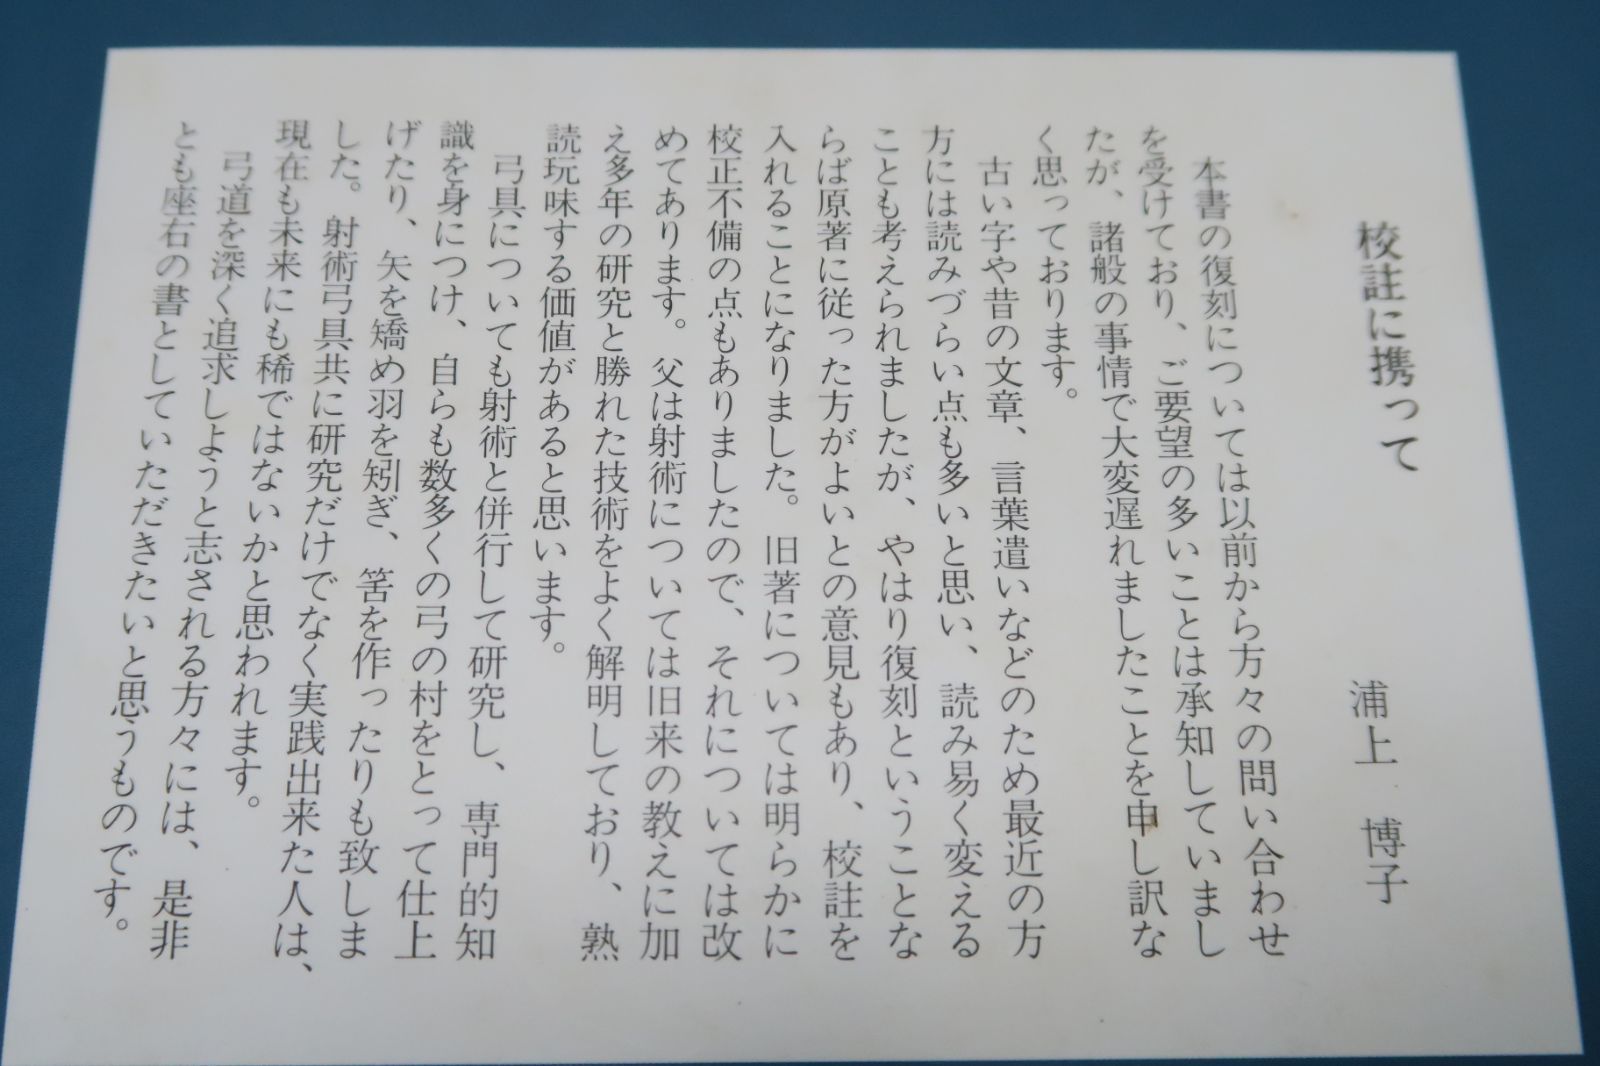 校註に携って
浦上 博子
本書の復刻については以前から方々の問い合わせ
を受けており、ご要望の多いことは承知していまし
たが、諸般の事情で大変遅れましたことを申し訳な
く思っております。
古い字や昔の文章、言葉遣いなどのため最近の方
方には読みづらい点も多いと思い、読み易く変える
ことも考えられましたが、やはり復刻ということな
らば原著に従った方がよいとの意見もあり、校註を
入れることになりました。旧著については明らかに
校正不備の点もありましたので、それについては改
めてあります。父は射術については旧来の教えに加
え多年の研究と勝れた技術をよく解明しており、熟
読玩味する価値があると思います。
弓具についても射術と併行して研究し、専門的知
識を身につけ、自らも数多くの弓の村をとって仕上
げたり、矢を矯め羽を矧ぎ、筈を作ったりも致しま
した。射術弓具共に研究だけでなく実践出来た人は、
現在も未来にも稀ではないかと思われます。
弓道を深く追求しようと志される方々には、是非
とも座右の書としていただきたいと思うものです。